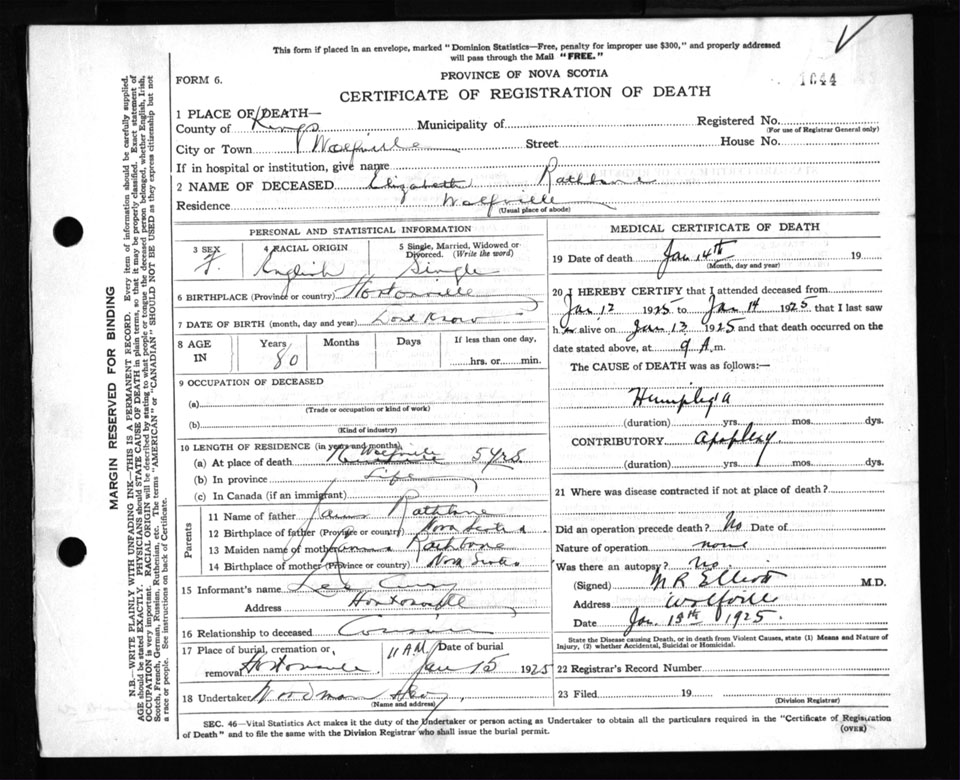 This form if placed in an envelope, marked "Dominion Statistics—Free, penalty for improper use $300," and properly addressed
will pass through the Mail "FREE."
FORM 6.
PROVINCE OF NOVA SCOTIA
1644
CERTIFICATE OF REGISTRATION OF DEATH
1 PLACE OF DEATH—
County of Kings Municipality of Registered No.
(For use of Registrar General only)
City or Town Wolfville Street House No.
If in hospital or institution, give name
2 NAME OF DECEASED Elizabeth Rathbone
Residence Wolfville
(Usual place of abode)
PERSONAL AND STATISTICAL INFORMATION
3 SEX F.
4 RACIAL ORIGIN English
5 Single, Married, Widowed or Divorced. (Write the word) Single
6 BIRTHPLACE (Province or country) Hortonville
7 DATE OF BIRTH (month, day and year) Dont Know
8 AGE IN Years 80 Months Days If less than one day, hrs. or min.
9 OCCUPATION OF DECEASED
(a)
(Trade or occupation or kind of work)
(b)
(Kind of industry)
10 LENGTH OF RESIDENCE (in years and months)
(a) At place of death Wolfville 5 yrs.
(b) In province Life
(c) In Canada (if an immigrant)
Parents
11 Name of father Rathbone
12 Birthplace of father (Province or country) Nova Scotia
13 Maiden name of mother Rathbone
14 Birthplace of mother (Province or country) Nova Scotia
15 Informant's name
Address Hortonville
16 Relationship to deceased Cousin
17 Place of burial, cremation or removal Hortonville 11 AM Date of burial Jan 15 1925
18 Undertaker Woodman
(Name and address)
MEDICAL CERTIFICATE OF DEATH
19 Date of death Jan 14th 19
(Month, day and year)
20 I HEREBY CERTIFY that I attended deceased from
Jan 12 1925 to Jan 14 1925 that I last saw
h er alive on Jan 13 1925 and that death occurred on
date stated above, at 9 A.m.
The CAUSE of DEATH was as follows:—
Humiplegia
(duration) yrs. mos. dys.
CONTRIBUTORY apoplexy
(duration) yrs. mos. dys.
21 Where was disease contracted if not at place of death?
Did an operation precede death? No Date of
Nature of operation none
Was there an autopsy? No
(Signed) M R Elliott M.D.
Address Wolfville
Date Jan. 1925.
State the Disease causing Death, or in death from Violent Causes, state (1) Means and Nature of
Injury, (2) whether Accidental, Suicidal or Homicidal.
22 Registrar's Record Number
23 Filed 19
(Division Registrar)
SEC. 46—Vital Statistics Act makes it the duty of the Undertaker or person acting as Undertaker to obtain all the particulars required in the "Certificate of Registration
of Death" and to file the same with the Division Registrar who shall issue the burial permit.
(OVER)
MARGIN RESERVED FOR BINDING
N.B.—WRITE PLAINLY WITH UNFADING INK—THIS IS A PERMANENT RECORD. Every item of information should be carefully supplied.
AGE should be stated EXACTLY. PHYSICIANS should STATE CAUSE OF DEATH in plain terms, so that it may be properly classified. Exact statement of
OCCUPATION is very important. RACIAL ORIGIN will be described by stating to what people or tongue the deceased person belonged, whether English, Irish,
Scotch, French, German, Russian, Ruthenian, etc. The terms "AMERICAN" or "CANADIAN" SHOULD NOT BE USED as they express citizenship but not
a race or people. See instructions on back of Certificate.